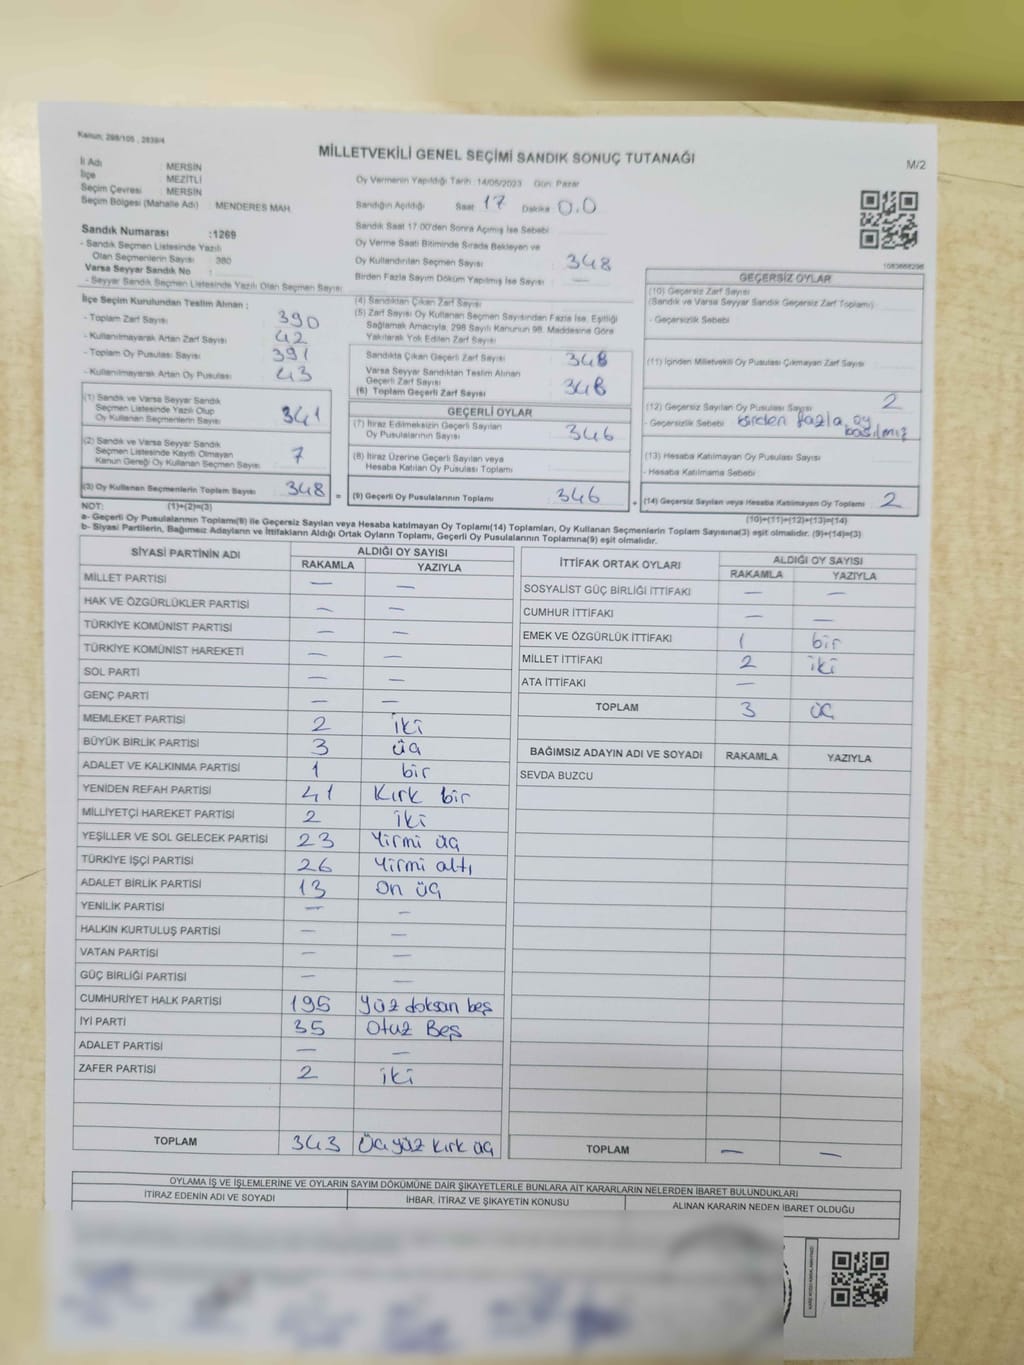 Kanun; 298/105 , 2839/4
MİLLETVEKİLİ GENEL SEÇİMİ SANDIK SONUÇ TUTANAĞI
M/2
İl Adı : MERSİN
İlçe : MEZİTLİ
Seçim Çevresi : MERSİN
Seçim Bölgesi (Mahalle Adı) : MENDERES MAH.
Oy Vermenin Yapıldığı Tarih :14/05/2023 Gün: Pazar
Sandığın Açıldığı Saat 17 Dakika 0.0
Sandık Saat 17:00'den Sonra Açılmış İse Sebebi
Oy Verme Saati Bitiminde Sırada Bekleyen ve
Oy Kullandırılan Seçmen Sayısı : 348
Birden Fazla Sayım Döküm Yapılmış İse Sayısı : —
1083668296
Sandık Numarası :1269
- Sandık Seçmen Listesinde Yazılı
Olan Seçmenlerin Sayısı : 380
Varsa Seyyar Sandık No :
- Seyyar Sandık Seçmen Listesinde Yazılı Olan Seçmen Sayısı:
İlçe Seçim Kurulundan Teslim Alınan ;
- Toplam Zarf Sayısı 390
- Kullanılmayarak Artan Zarf Sayısı 42
- Toplam Oy Pusulası Sayısı 391
- Kullanılmayarak Artan Oy Pusulası 43
(1) Sandık ve Varsa Seyyar Sandık
Seçmen Listesinde Yazılı Olup
Oy Kullanan Seçmenlerin Sayısı 341
(2) Sandık ve Varsa Seyyar Sandık
Seçmen Listesinde Kayıtlı Olmayan
Kanun Gereği Oy Kullanan Seçmen Sayısı 7
(3) Oy Kullanan Seçmenlerin Toplam Sayısı 348 =
(4) Sandıktan Çıkan Zarf Sayısı
(5) Zarf Sayısı Oy Kullanan Seçmen Sayısından Fazla İse, Eşitliği
Sağlamak Amacıyla, 298 Sayılı Kanunun 98. Maddesine Göre
Yakılarak Yok Edilen Zarf Sayısı
Sandıkta Çıkan Geçerli Zarf Sayısı 348
Varsa Seyyar Sandıktan Teslim Alınan
Geçerli Zarf Sayısı
(6) Toplam Geçerli Zarf Sayısı 348
GEÇERLİ OYLAR
(7) İtiraz Edilmeksizin Geçerli Sayılan
Oy Pusulalarının Sayısı 346
(8) İtiraz Üzerine Geçerli Sayılan veya
Hesaba Katılan Oy Pusulası Toplamı
(9) Geçerli Oy Pusulalarının Toplamı 346 +
GEÇERSİZ OYLAR
(10) Geçersiz Zarf Sayısı
(Sandık ve Varsa Seyyar Sandık Geçersiz Zarf Toplamı)
- Geçersizlik Sebebi
(11) İçinden Milletvekili Oy Pusulası Çıkmayan Zarf Sayısı
(12) Geçersiz Sayılan Oy Pusulası Sayısı 2
- Geçersizlik Sebebi birden fazla oy
basılmış
(13) Hesaba Katılmayan Oy Pusulası Sayısı
- Hesaba Katılmama Sebebi
(14) Geçersiz Sayılan veya Hesaba Katılmayan Oy Toplamı 2
NOT: (1)+(2)=(3)
(10)+(11)+(12)+(13)=(14)
a- Geçerli Oy Pusulalarının Toplamı(9) ile Geçersiz Sayılan veya Hesaba katılmayan Oy Toplamı(14) Toplamları, Oy Kullanan Seçmenlerin Toplam Sayısına(3) eşit olmalıdır. (9)+(14)=(3)
b- Siyasi Partilerin, Bağımsız Adayların ve İttifakların Aldığı Ortak Oyların Toplamı, Geçerli Oy Pusulalarının Toplamına(9) eşit olmalıdır.
SİYASİ PARTİNİN ADI ALDIĞI OY SAYISI
RAKAMLA YAZIYLA
MİLLET PARTİSİ — —
HAK VE ÖZGÜRLÜKLER PARTİSİ — —
TÜRKİYE KOMÜNİST PARTİSİ — —
TÜRKİYE KOMÜNİST HAREKETİ — —
SOL PARTİ — —
GENÇ PARTİ — —
MEMLEKET PARTİSİ 2 iki
BÜYÜK BİRLİK PARTİSİ 3 üç
ADALET VE KALKINMA PARTİSİ 1 bir
YENİDEN REFAH PARTİSİ 41 Kırk bir
MİLLİYETÇİ HAREKET PARTİSİ 2 iki
YEŞİLLER VE SOL GELECEK PARTİSİ 23 Yirmi üç
TÜRKİYE İŞÇİ PARTİSİ 26 Yirmi altı
ADALET BİRLİK PARTİSİ 13 On üç
YENİLİK PARTİSİ — —
HALKIN KURTULUŞ PARTİSİ — —
VATAN PARTİSİ — —
GÜÇ BİRLİĞİ PARTİSİ — —
CUMHURİYET HALK PARTİSİ 195 Yüz doksan beş
İYİ PARTİ 35 Otuz Beş
ADALET PARTİSİ — —
ZAFER PARTİSİ 2 iki
TOPLAM 343 Üçyüz kırk üç
İTTİFAK ORTAK OYLARI ALDIĞI OY SAYISI
RAKAMLA YAZIYLA
SOSYALİST GÜÇ BİRLİĞİ İTTİFAKI — —
CUMHUR İTTİFAKI — —
EMEK VE ÖZGÜRLÜK İTTİFAKI 1 bir
MİLLET İTTİFAKI 2 iki
ATA İTTİFAKI —
TOPLAM 3 üç
BAĞIMSIZ ADAYIN ADI VE SOYADI RAKAMLA YAZIYLA
SEVDA BUZCU
TOPLAM — —
OYLAMA İŞ VE İŞLEMLERİNE VE OYLARIN SAYIM DÖKÜMÜNE DAİR ŞİKAYETLERLE BUNLARA AİT KARARLARIN NELERDEN İBARET BULUNDUKLARI
İTİRAZ EDENİN ADI VE SOYADI İHBAR, İTİRAZ VE ŞİKAYETİN KONUSU ALINAN KARARIN NEDEN İBARET OLDUĞU